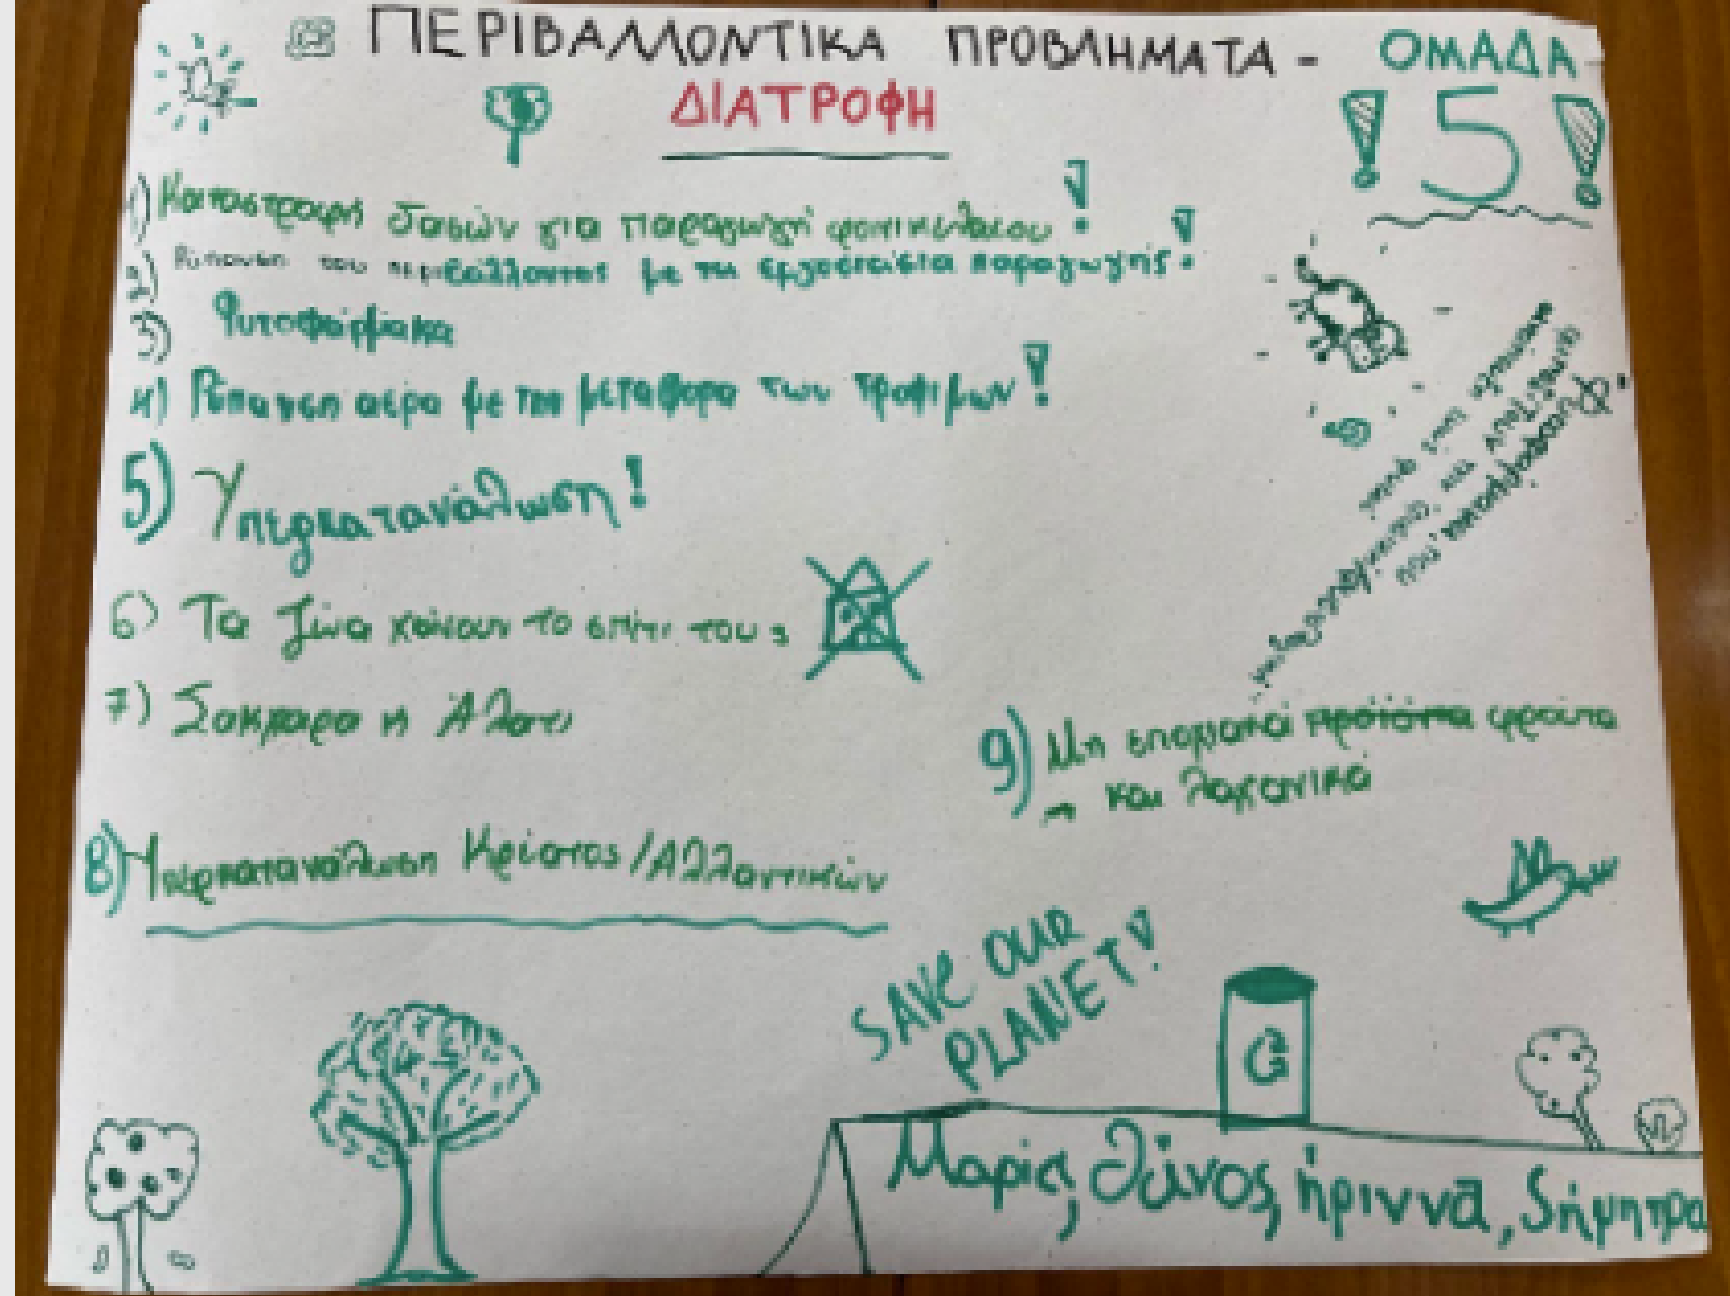 ΠΕΡΙΒΑΛΛΟΝΤΙΚΑ ΠΡΟΒΛΗΜΑΤΑ - ΟΜΑΔΑ
ΔΙΑΤΡΟΦΗ
! 5 !
1) Καταστροφή δασών για παραγωγή φοινικέλαιου!
2) Ρύπανση του περιβάλλοντος με τα εργοστάσια παραγωγής!
3) Φυτοφάρμακα
4) Ρύπανση αέρα με την μεταφορά των τροφίμων!
5) Υπερκατανάλωση!
6) Τα ζώα χάνουν το σπίτι τους
7) Ζάχαρο η Άλατι
8) Υπερκατανάλωση Κρέατος/Αλλαντικών
9) Μη εποχιακά προϊόντα φρούτα
→ και λαχανικά
Φυτοφάρμακα που
SAVE OUR
PLANET!
Μαρία, Θάνος, ήριννα, δήμητρα